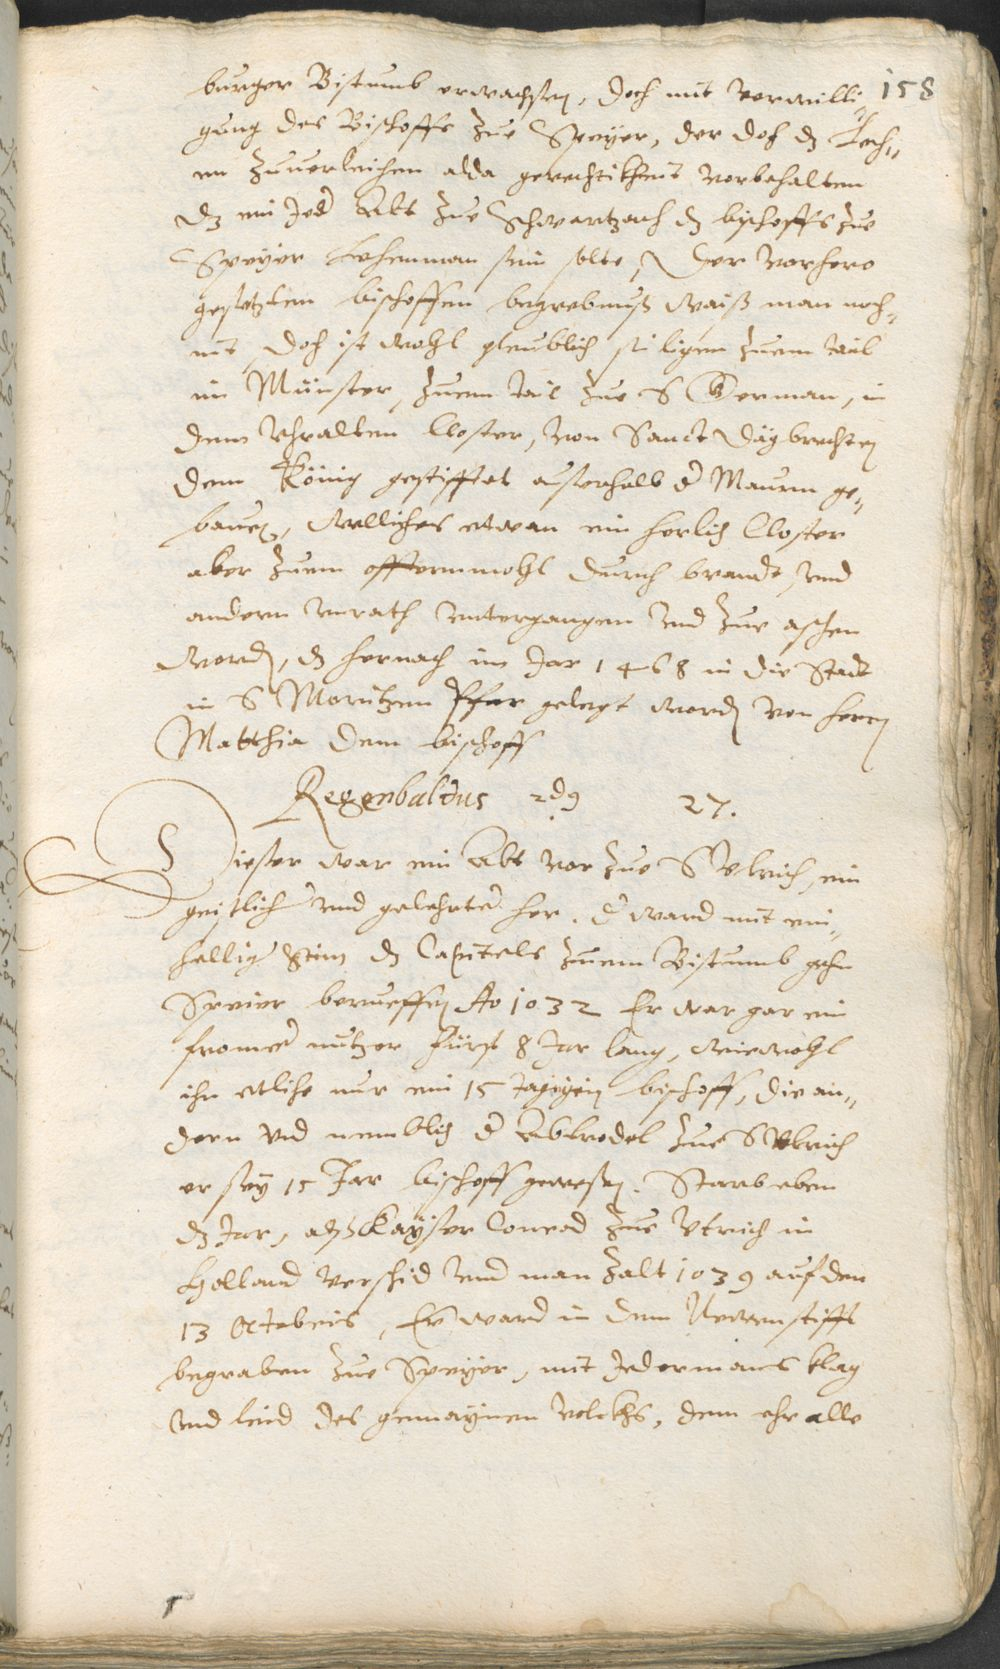 158
burger Bistumb erwachsen, doch mit verwilli„
gung des Bischoffs zue Speyer, der doh dz Lech„
en zuuerleichen alda gerechtikheit vorbehalten
Dz ein Jed Abt zue Schwartzach dz bischoffs zue
Speyer Lehenman sein solte, Der vorhero
gesetzten bischoffen begrebnuß waiß man noch„
nit, doh ist wohl gleublich sie ligen zuem tail
im Münster, zuem tail zue S German, in
dem Vhralten Closter, von Sanct Dägbrechten
dem König gestifftet ausserhalb d Mauren ge„
bauen, welliches etwan ein herlich Closter
aber zuem offtermmohl durch brandt, vnd
andern vnrath vntergangen vnd zue aschen
worden, dz hernach im Jar 1468 in die Stadt
in S Moritzen Pfar gelegt worden von herrn
Matthia dem bischoff
Regenbaldus 2dg 27.
Dieser war ein Abt vor zue S Vlrich, ein
geistlicher vnd gelehrter her. d ward mit ein„
hellig Stim dz Capitels zuem Bistumb gehn
Speier berueffen Ao 1032 Er war gar ein
fromer nutzer Fürst 8 Jar lang, wiewohl
ihn etlihe nur ein 15 Tägigen bischoff, die an„
dern vnd nemblich d Abbrodel zue S Vlrich
er sey 15 Jar bischoff gewesen. Starb eben
dz Jar, alß Kayser Conrad zue Vtrich in
Holland verschid vnd man zalt 1039 auf den
13 Octobris, Er ward in dem Newenstifft
begraben zue Speyer, mit Jedermans klag
vnd leid des gemaynen volckhs, dem ehr alle